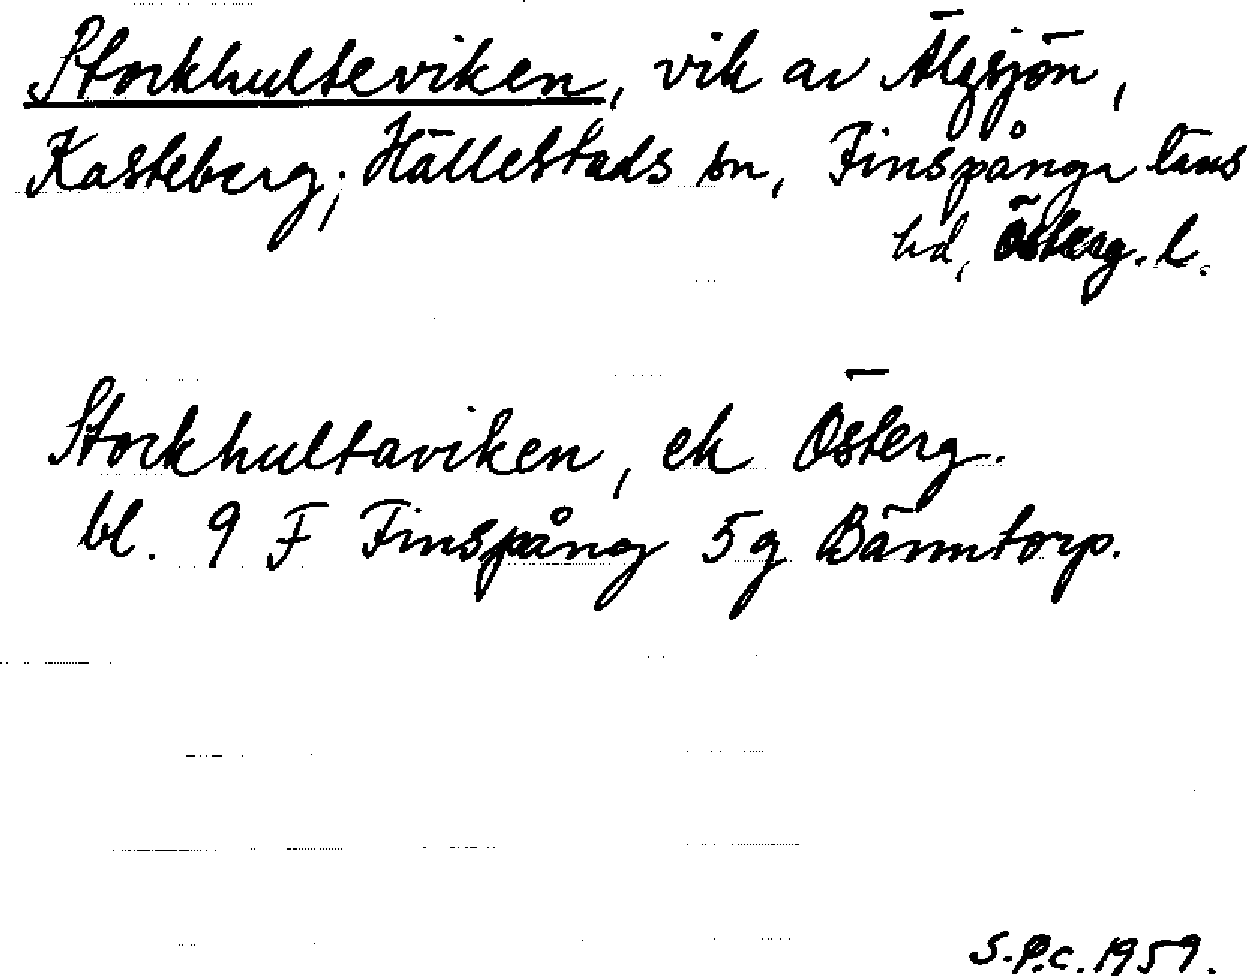 Storkhulteviken, vik av Älgsjön,
Kasteberg; Hällestads sn, Finspånga läns
hd, Österg. l.
Storkhultaviken, ek Österg.
bl. 9 F Finspång 5g Bänntorp.
S.P.C. 1959.